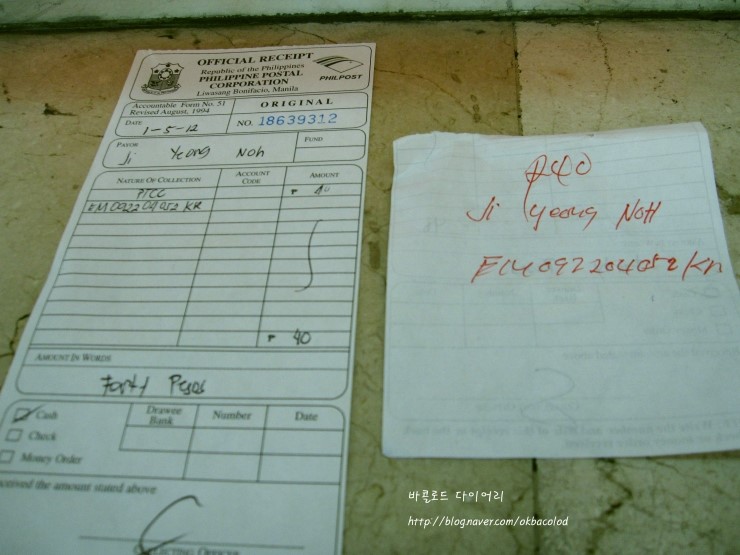 OFFICIAL RECEIPT
Republic of the Philippines
PHILIPPINE POSTAL
CORPORATION
Liwasang Bonifacio, Manila
PHILPOST
Accountable Form No. 51
Revised August, 1994
ORIGINAL
DATE
1-5-12
NO. 18639312
PAYOR
Ji Yeong Noh
FUND
NATURE OF COLLECTION
ACCOUNT CODE
AMOUNT
PTCC
₱ 40
EM 092204052 KR
₱ 40
AMOUNT IN WORDS
Forty Pesos
Cash
Check
Money Order
Drawee Bank
Number
Date
received the amount stated above
COLLECTING OFFICER
₱40
Ji Yeong NOH
EM092204052KR
바콜로드 다이어리
http://blog.naver.com/okbacolod